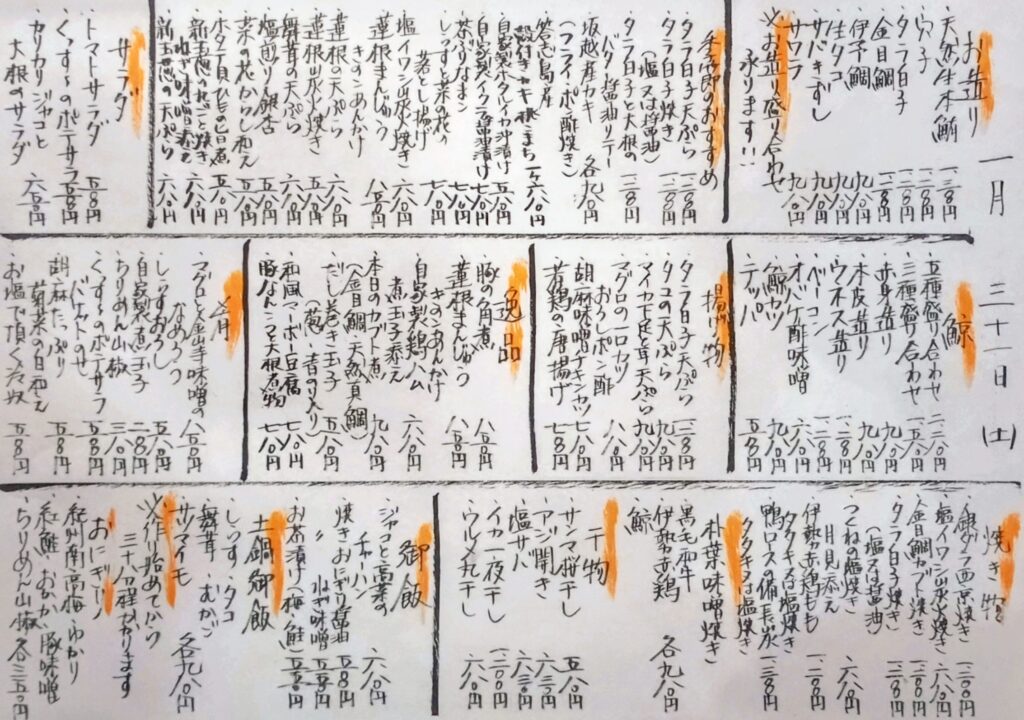 一月 三十一日（土）
お造り
・天然生本鮪 一、三八〇円
・穴子 一、二八〇円
・タラ白子 一、二八〇円
・金目鯛 一、二八〇円
・伊予鯛 九八〇円
・生タコ 九八〇円
・サバきずし 九八〇円
・サワラ 九八〇円
※お造り盛り合わせ
承ります!!
季節のおすすめ
・タラ白子天ぷら 一、二八〇円
・タラ白子焼き 一、二八〇円
（塩又は醤油）
・タラ白子と大根の
バター醤油ソテー 一、二八〇円
・坂越産カキ 各九八〇円
（フライ・ポン酢焼き）
・答志島産
殻付きカキ 一ケ六八〇円
・自家製ホタルイカ沖漬け 五八〇円
・自家製イクラ醤油漬け 七八〇円
・茶ぶりなまこ 七八〇円
・しらすと菜の花の
春とじ揚げ 七八〇円
・塩イワシ炭火焼き 六八〇円
・蓮根まんじゅう
きのこあんかけ 八五〇円
・蓮根の天ぷら 六八〇円
・蓮根炭火焼き 五八〇円
・舞茸の天ぷら 六八〇円
・塩煎り銀杏 五五〇円
・菜の花からし和え 五五〇円
・新玉葱の天ぷら 六八〇円
サラダ
・トマトサラダ 五五〇円
・くっすぅのポテサラ 五八〇円
・カリカリジャコと
大根のサラダ 六五〇円
鯨
・五種盛り合わせ 二、二八〇円
・三種盛り合わせ 一、五八〇円
・赤身造り 九八〇円
・本皮造り 九八〇円
・ウネス造り
・ベーコン
・オバケ酢味噌 六八〇円
・鯨カツ 九八〇円
・テッパ 五八〇円
揚げ物
・タラ白子天ぷら 一、二八〇円
・タコの天ぷら 九八〇円
・マイカ王道と茸天ぷら 九八〇円
・マグロの一口カツ
おろしポン酢 八八〇円
・胡麻味噌チキンカツ 七八〇円
・若鶏の唐揚げ 七五〇円
逸品
・豚の角煮 八五〇円
・蓮根まんじゅう
きのこあんかけ 八五〇円
・自家製鶏ハム
煮玉子添え 六八〇円
・本日のカブト煮 九八〇円
（金目鯛・天然真鯛）
・だし巻き玉子 五八〇円
（葱・青のり入り）
・和風マーボー豆腐 七八〇円
・豚なんこつと大根煮物 七八〇円
肴
・マグロと金山寺味噌の
なめろう 五八〇円
・しらすおろし 五五〇円
・自家製煮玉子 二八〇円
・ちりめん山椒 三八〇円
・くっすぅのポテサラ
バゲットのせ 五八〇円
・胡麻たっぷり
菊菜の白和え 五八〇円
・お塩で頂く冷奴 五五〇円
焼き物
・銀ダラ西京焼き 一、二〇〇円
・塩イワシ炭火焼き 六八〇円
・金目鯛カブト焼き
・タラ白子焼き 一、二八〇円
（塩又は醤油）
・つくねの塩焼き
月見添え 六八〇円
・伊勢赤鶏もも
タタキ又は塩焼き
・鴨ロースの備長炭
タタキ又は塩焼き 一、三八〇円
朴葉味噌焼き
・黒毛和牛
・伊勢赤鶏 各九八〇円
・鯨
干物
・サンマ桜干し 五八〇円
・アジ開き 六三〇円
・塩サバ 六三〇円
・イカ一夜干し 一、二〇〇円
・ウルメ丸干し 六八〇円
御飯
・ジャコと高菜の
チャーハン 六八〇円
・焼きおにぎり醤油 五五〇円
・〃 ねぎ味噌 五五〇円
・お茶漬け（梅・鮭） 五五〇円
土鍋御飯
・しらす・タコ
・舞茸・むかご 各九八〇円
・サツマイモ
※作り始めてから
三十八分程かかります
おにぎり
・紀州南高梅・ゆかり
・紅鮭・おかか・豚味噌
・ちりめん山椒 各三五〇円